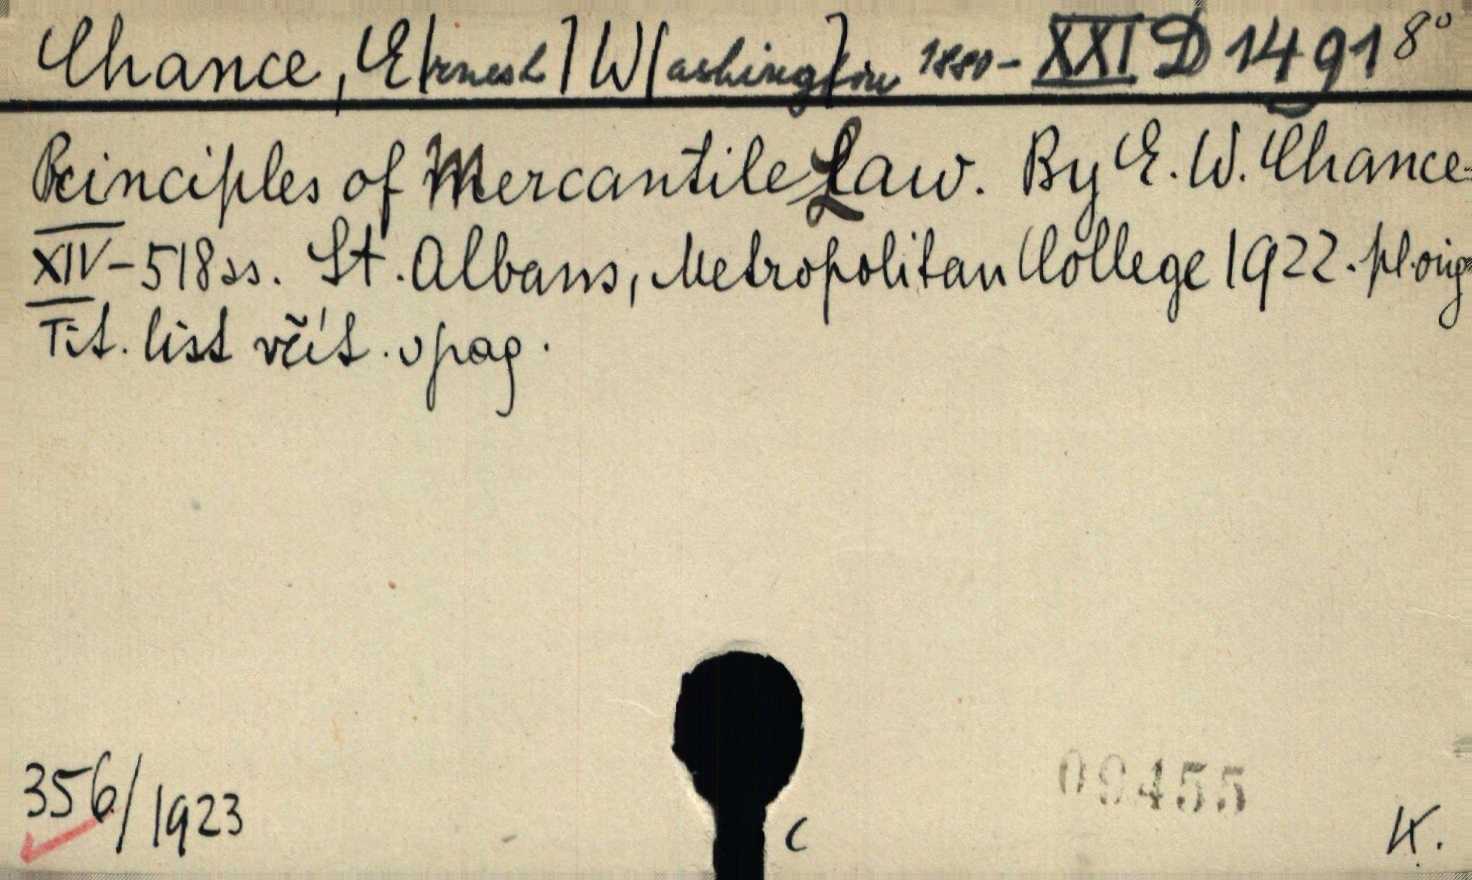 Chance, E[rnest] W[ashington] 1880- XXI D 1491 8°
Principles of Mercantile Law. By E. W. Chance
XIV-518 ss. St. Albans, Metropolitan College 1922. pl. orig.
Tit. list včít. v pag.
356/1923
C
09455
K.